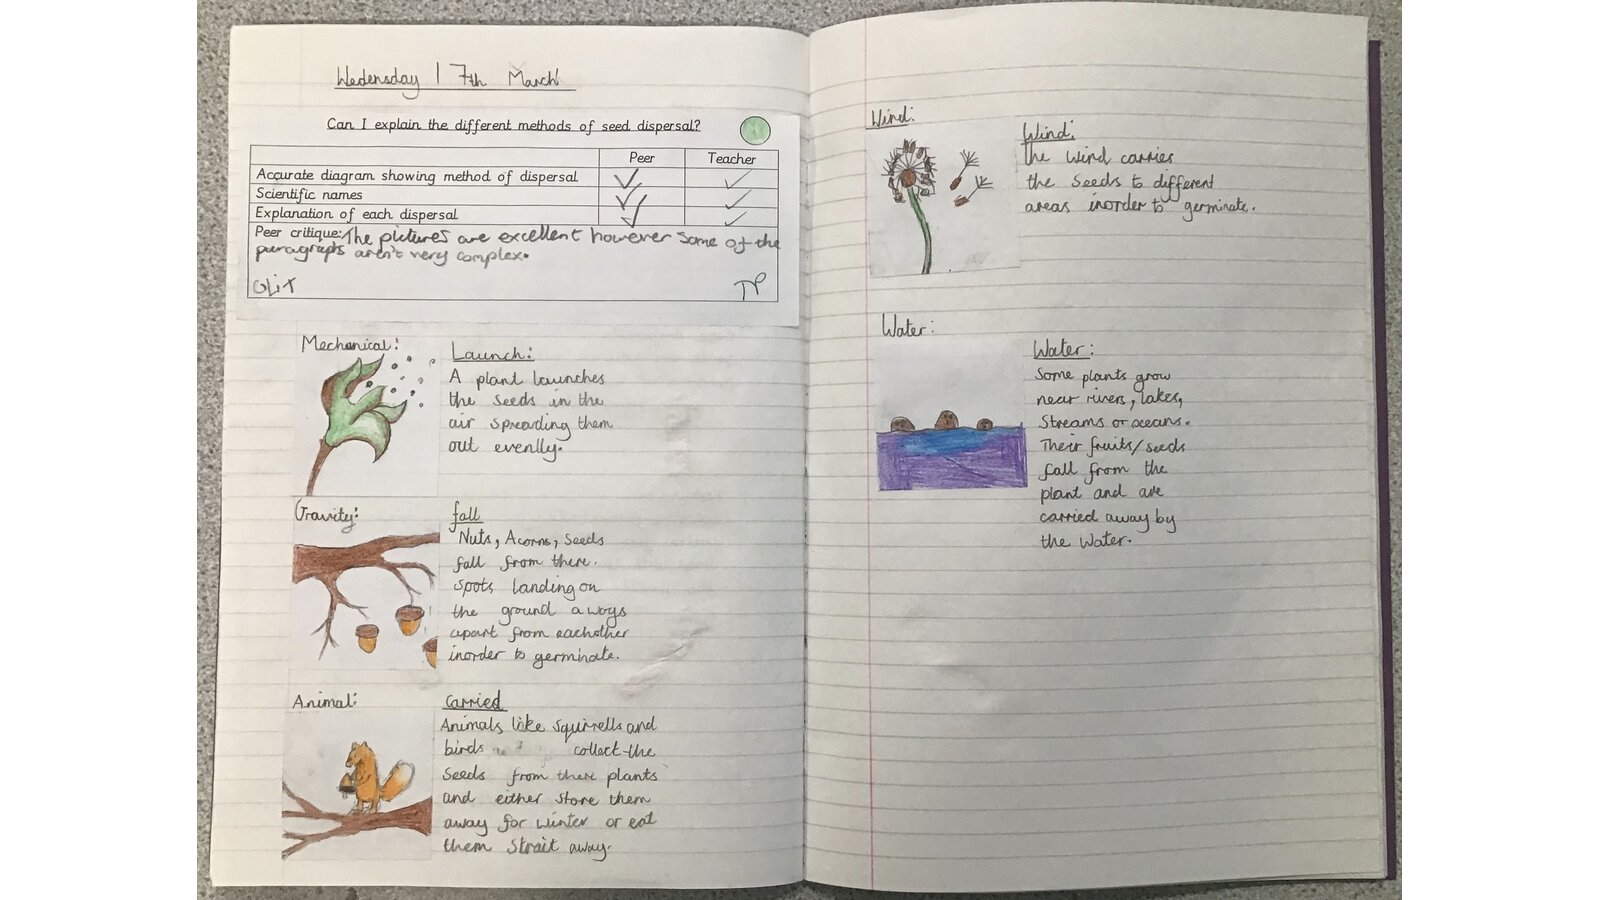 Wedensday 17th March
Can I explain the different methods of seed dispersal?
Peer Teacher
Accurate diagram showing method of dispersal
Scientific names
Explanation of each dispersal
Peer critique: The pictures are excellent however some of the
paragraphs aren't very complex.
TP
Mechanical:
Launch:
A plant launches
the seeds in the
air spreading them
out evenlly.
Gravity:
fall
Nuts, Acorns, Seeds
fall from there.
spots landing on
the ground a ways
apart from eachother
inorder to germinate.
Animal:
Carried
Animals like squirrells and
birds collect the
seeds from there plants
and either store them
away for winter or eat
them strait away.
Wind:
Wind:
the wind carries
the seeds to different
areas inorder to germinate.
Water:
Water:
Some plants grow
near rivers, lakes,
Streams or oceans.
Their fruits/seeds
fall from the
plant and are
carried away by
the water.